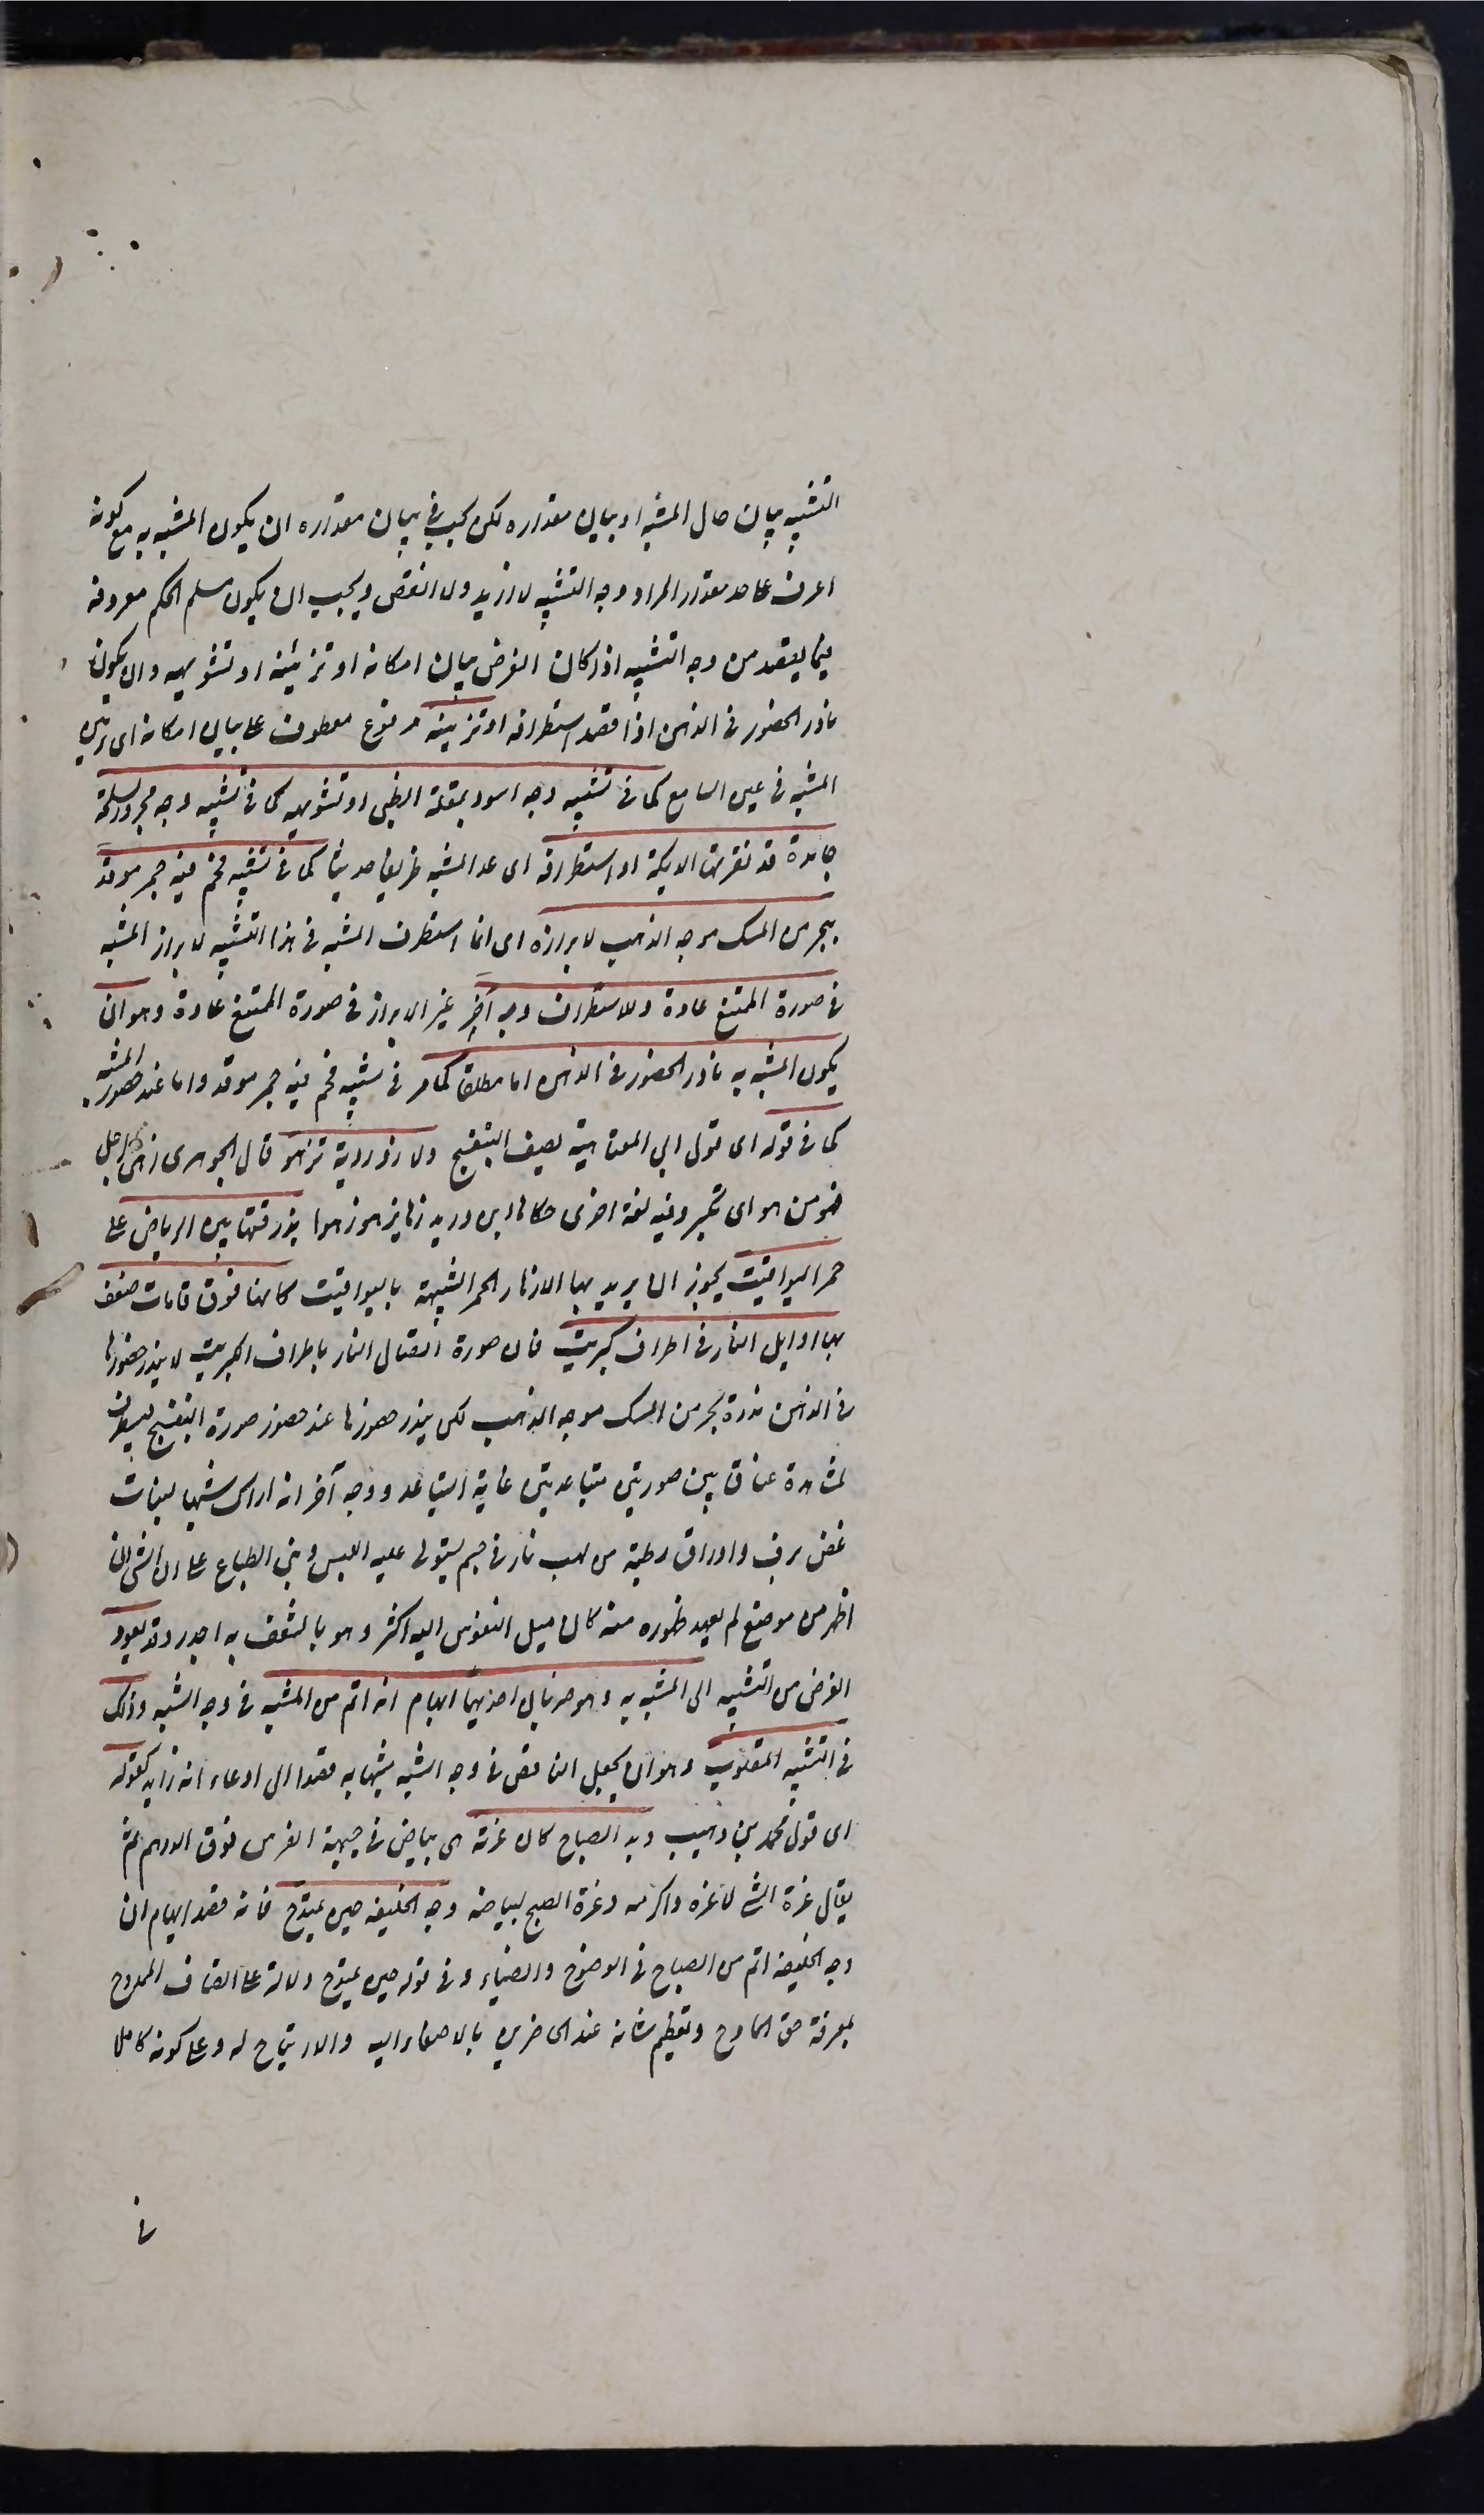 التشبيه بيان حال المشبه او بيان مقداره لكن يجب في بيان مقداره ان يكون المشبه به مع كونه
اعرف على حد مقدار المراد وجه التشبيه لا ازيد ولا انقص ويجب ان يكون مسلم الحكم معروفه
فيما يقصد من وجه التشبيه اذا كان الغرض بيان امكانه او تزيينه او تشويهه وان يكون
نادر الحضور في الذهن اذا قصد استطرافه او تزيينه مرفوع معطوف على بيان امكانه اى تزيين
المشبه في عين السامع كما في تشبيه وجه اسود بمقلة الظبي او تشويهه كما في تشبيه وجه مجدور بسلحة
جامدة قد نقرتها الديكة او استطرافه اى عد المشبه طريفا حديثا كما في تشبيه فحم فيه جمر موقد
ببحر من المسك موجه الذهب لابرازه اى انما استطرف المشبه في هذا التشبيه لابراز المشبه
في صورة الممتنع عادة وللاستطراف وجه آخر غير الابراز في صورة الممتنع عادة وهو ان
يكون المشبه به نادر الحضور في الذهن اما مطلقا كما مر في تشبيه فحم فيه جمر موقد واما عند حضور المشبه
كما في قوله اى قول ابي العتاهية يصف البنفسج ولازوردية تزهو قال الجوهرى زهى الرجل
فهو مزهو اى تكبر وفيه لغة اخرى حكاها ابن دريد زها يزهو زهوا بزرقتها بين الرياض على
حمر اليواقيت يجوز ان يريد بها الازهار الحمر الشبيهة باليواقيت كانها فوق قامات ضعفن
بها اوايل النار في اطراف كبريت فان صورة اتصال النار باطراف الكبريت لا يندر حضورها
في الذهن ندرة بحر من المسك موجه الذهب لكن يندر حضورها عند حضور صورة البنفسج فيستطرف
لمشاهدة عناق بين صورتين متباعدتين غاية التباعد ووجه آخر انه اراك شبها لنبات
غض يرف واوراق رطبة من لهب نار في جسم يستولى عليه اليبس ومبنى الطباع على ان الشئ اذا
ظهر من موضع لم يعهد ظهوره منه كان ميل النفوس اليه اكثر وهو بالشغف به اجدر وقد يعود
الغرض من التشبيه الى المشبه به وهو ضربان احدهما ايهام انه اتم من المشبه في وجه الشبه وذلك
في التشبيه المقلوب وهو ان يجعل الناقص في وجه الشبه مشبها به قصدا الى ادعاء انه زايد كقوله
اى قول محمد بن وهيب وبدا الصباح كان غرته هى بياض في جبهة الفرس فوق الدرهم ثم
يقال غرة الشئ لاغره واكرمه وغرة الصبح لبياضه وجه الخليفة حين يمتدح فانه قصد ايهام ان
وجه الخليفة اتم من الصباح في الوضوح والضياء وفي قوله حين يمتدح دلالة على اتصاف الممدوح
بمعرفة حق المادح وتعظيم شانه عند الحاضرين بالاصغاء اليه والارتياح له وعلى كونه كاملا
في